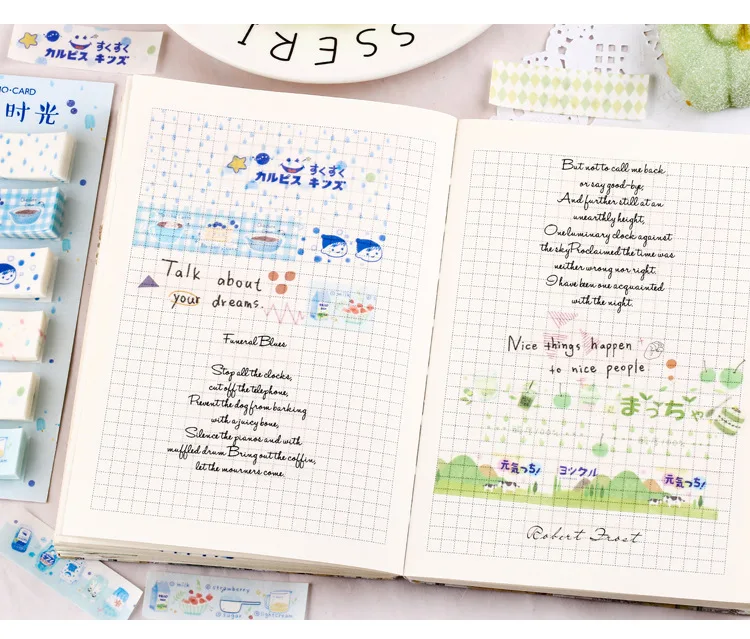 すくすく
カルピス キッズ
SSERT
O·CARD
时光
すくすく
カルピス キッズ
Talk about
your dreams.
Funeral Blues
Stop all the clocks,
cut off the telephone,
Prevent the dog from barking
with a juicy bone,
Silence the pianos and with
muffled drum Bring out the coffin,
let the mourners come.
But not to call me back
or say good-bye;
And further still at an
unearthly height,
One luminary clock against
the sky Proclaimed the time was
neither wrong nor right.
I have been one acquainted
with the night.
Nice things happen
to nice people.
まっちゃ
元気っち!
ヨックル
元気っち!
Robert Frost
milk
strawberry
sugar